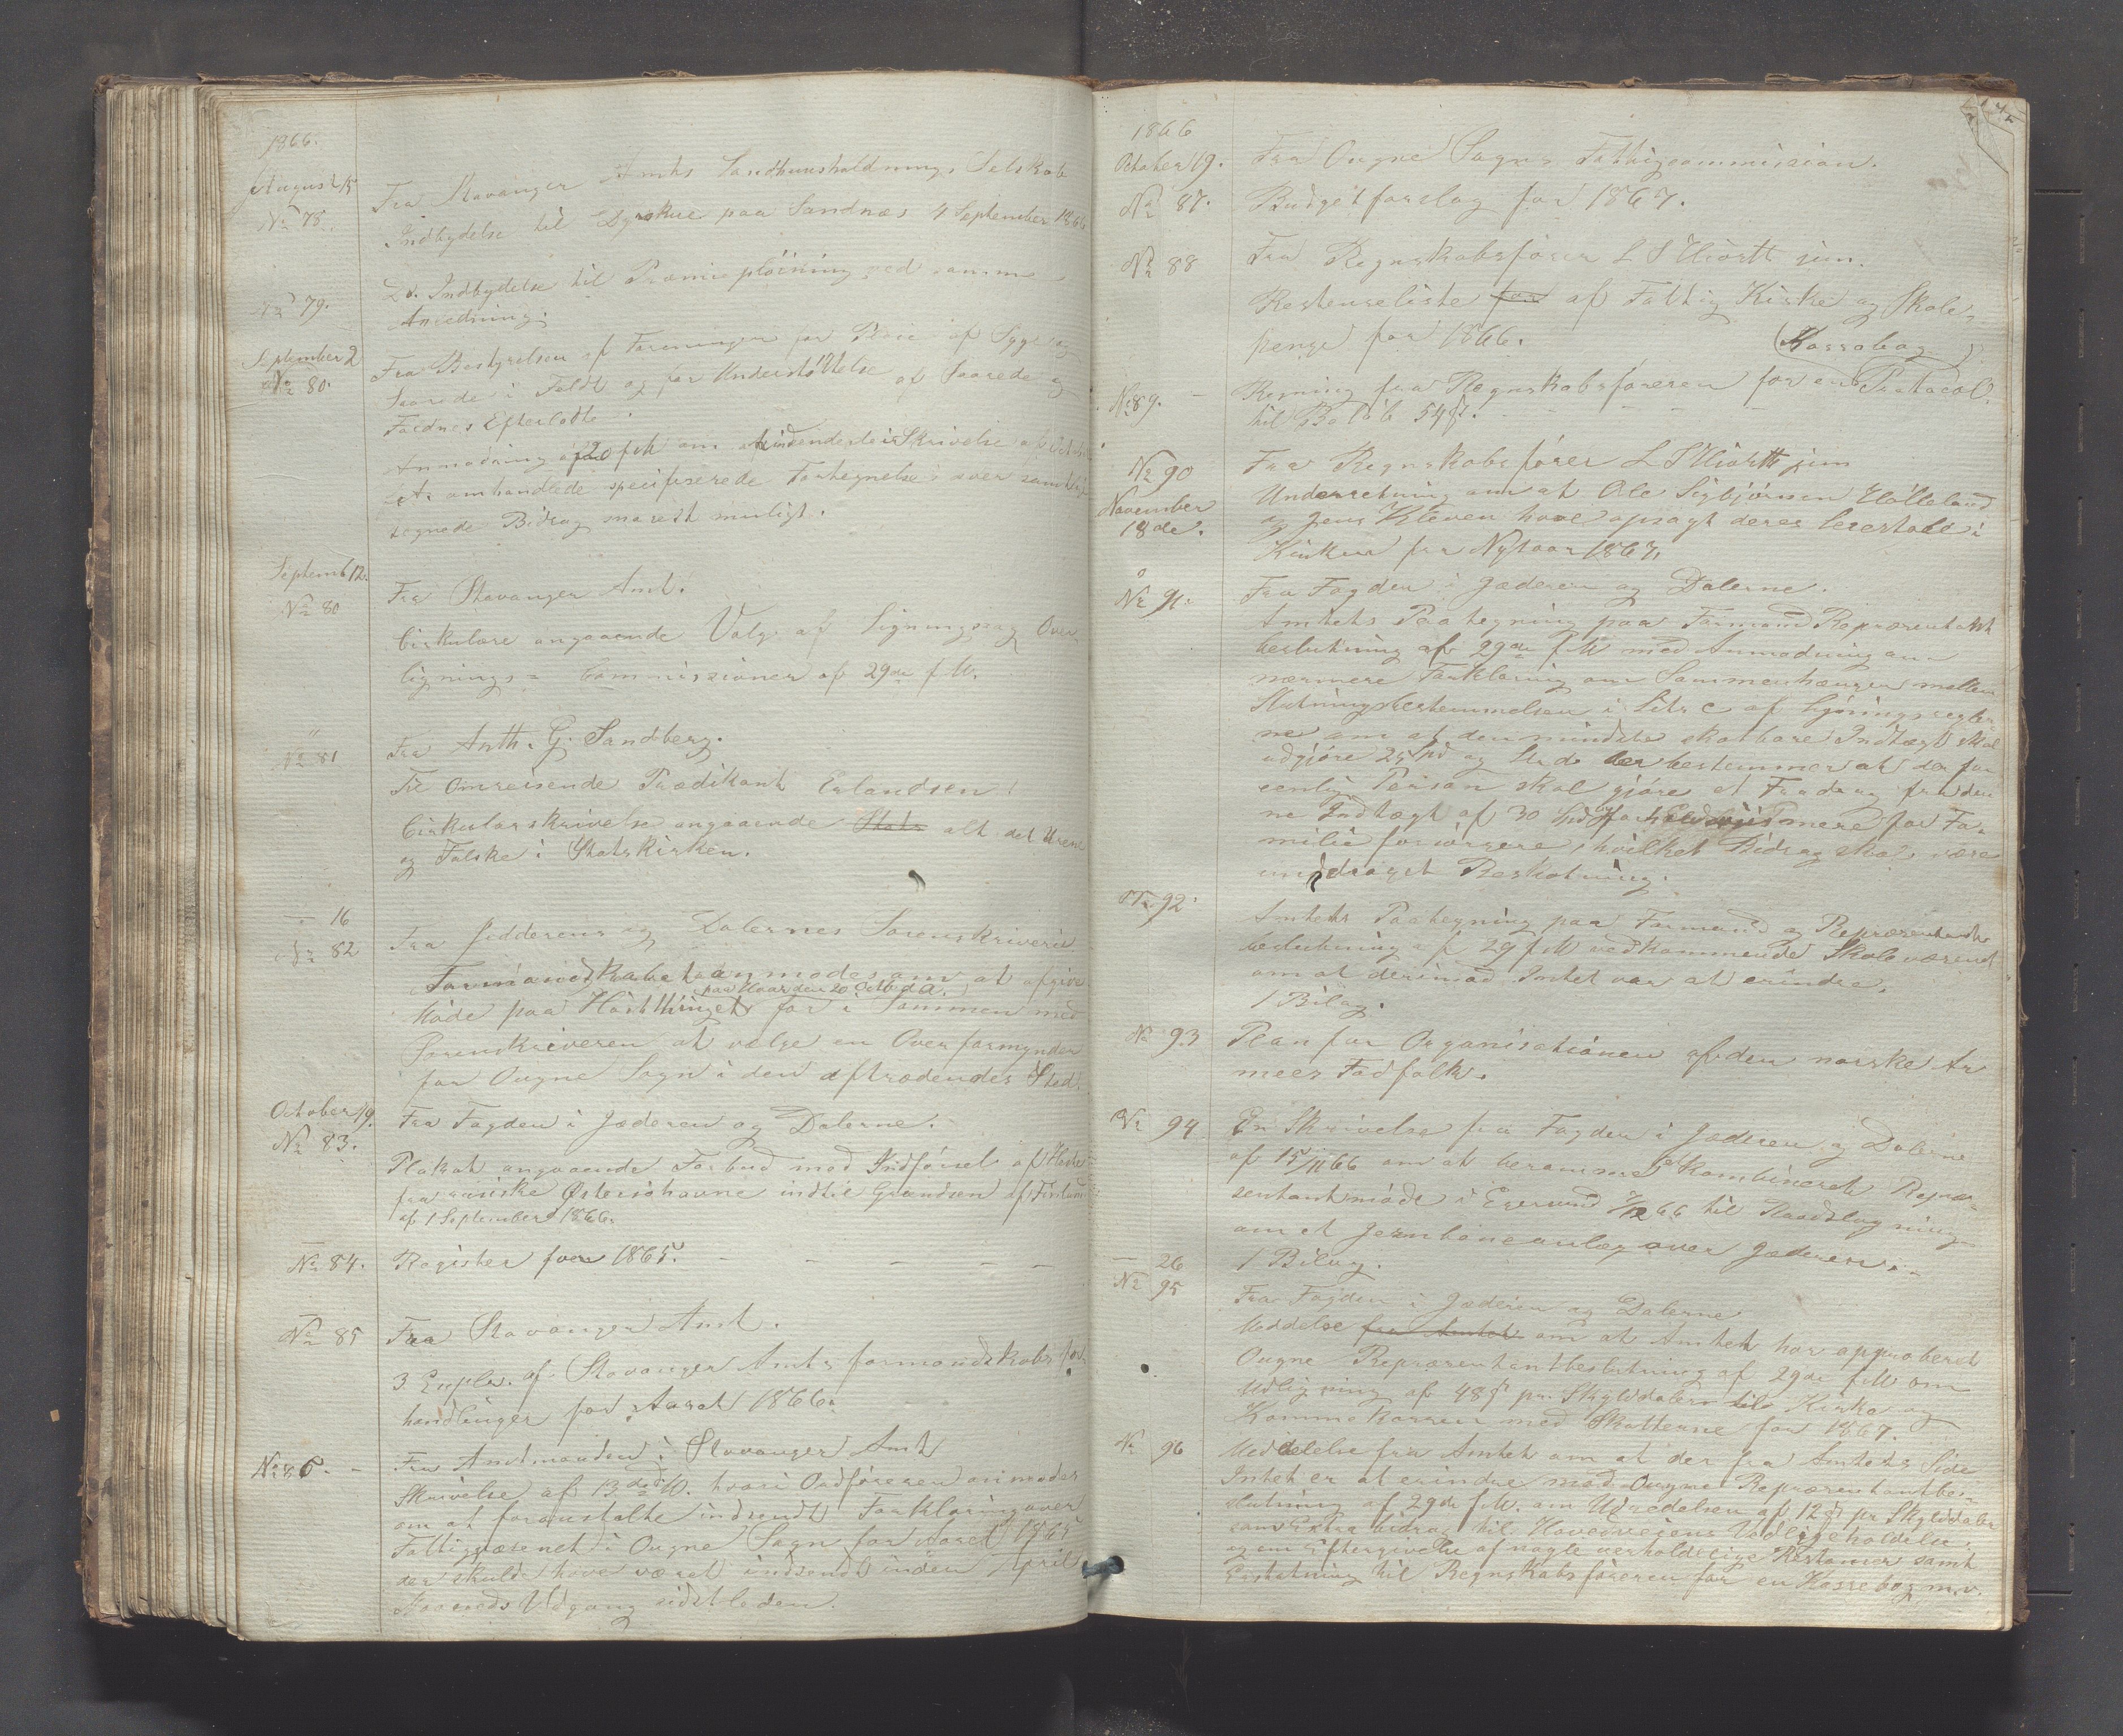 1866.
August 15
No 78.
Fra Stavanger Amts Landhuusholdnings Selskab
Indbydelse til Dyrskue paa Sandnæs 4 September 1866
No 79.
Do. Indbydelse til Præmiepløining ved samme
Anledning.
September 2
No 80.
Fra Bestyrelsen af Foreningen for Pleie af Syge og
Saarede i Feldt og for Understøttelse af Saarede og
Faldnes Efterladte.
Anmodning af 20 f M om at indsende den i Skrivelse af
omhandlede specificerede Fortegnelse over samtlige
tegnede Bidrag snarest muligt.
Septemb 12.
No 80
Fra Stavanger Amt.
Cirkulære angaaende Valg af Lignings og Over
lignings = Commissioner af 29de f M.
"
No 81
Fra Anth. G. Sandberg.
Til Omreisende Prædikant Erlandsen!
Cirkulærskrivelse angaaende Stats alt det Urene
og Falske i Statskirken.
— 16
No 82
Fra Jedderens og Dalernes Sorenskriverie
Formandskabet anmodes om at afgive
paa Haar den 20 Octob d A.
Møde paa Høstthinget for i Sammen med
Sorenskriveren at vælge en Overformynder
for Ougne Sogn i den aftrædendes Sted.
October 19.
No 83.
Fra Fogden i Jæderen og Dalerne.
Plakat angaaende Forbud mod Indførsel af Heste
fra russiske Østersjøhavne indtil Grændsen af Finland
af 1 September 1866.
—
No 84.
Register for 1865. — — — — —
—
No 85
Fra Stavanger Amt.
3 Expl. af Stavanger Amts formandskabs for
handlinger for Aaret 1866.
No 86. —
Fra Amtmanden i Stavanger Amt
Skrivelse af 13de d M. hvori Ordføreren anmodes
om at foranstalte indsendt Forklaring over
Fattigvæsenet i Ougne Sogn for Aaret 1865
der skulde have været indsendt inden April
Maaneds Udgang sidstleden.
1866
October 19.
No 87.
Fra Ougne Sogns Fattigcommission.
Budgetforslag for 1867.
No 88
Fra Regnskabsfører L S Hiorth jun.
Restanseliste for af Fattig Kirke og Skole
penge for 1866.
(Kassabog)
No 89. —
Regning fra Regnskabsføreren for en Protocol
til Beløb 54 s. — — — — —
No 90
November
18de.
Fra Regnskabsfører L S Hiorth jun
Underretning om at Ole Sigbjørnsen Hølleland
og Jens Kleven have opsagt deres leiestole i
Kirken fra Nytaar 1867.
No 91.
Fra Fogden i Jæderen og Dalerne.
Amtets Paategning paa Formand Repræsentant
beslutning af 29de f M med Anmodning om
nærmere Forklaring om Sammenhængen mellem
Slutningsbestemmelsen i Litr c af Ligningsregler
ne om at den mindste skatbare Indtægt skal
udgjøre 25 Spd og Litr d der bestemmer at der for
enlig Person skal gjøre et Fradrag fra den
ne Indtægt af 30 Spd og forholdsviis mere for Fa
milieforsørgere, hvilket Bidrag skal være
unddraget Beskatning.
No 92.
Amtets Paategning paa Formand og Repræsentant
beslutning af 29 f M vedkommende Skolevæsenet
om at derimod Intet var at erindre.
1 Bilag.
No 93
Plan for Organisationen af den norske Ar
mees Fodfolk.
No 94
En Skrivelse fra Fogden i Jæderen og Dalerne
af 15/11 66 om at beramme et Kombineret Repræ-
sentantmøde i Egersund 7/12 66 til Raadslagning
om et Jernbaneanlæg over Jæderen. —
1 Bilag.
— 26
No 95
Fra Fogden i Jæderen og Dalerne
Meddelse fra Amtet om at Amtet har approberet
Ougne Repræsentantbeslutning af 29de f M om
Udligning af 48 s pr. Skylddaler til Kirke og
Kommekassen med Skatterne for 1867.
No 96
Meddelelse fra Amtet om at der fra Amtets Side
Intet er at erindre mod Ougne Repræsentantbes-
lutning af 29de f M. om Udredelsen af 12 s pr Skylddaler
som Extra bidrag til Hovedveiens Vedligeholdelse
og om Eftergivelse af nogle uerholdelige Restancer samt
Erstatning til Regnskabsføreren for en Kassebog m.v.